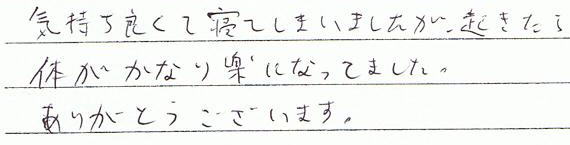 気持ち良くて寝てしまいましたが、起きたら
体がかなり楽になってました。
ありがとうございます。